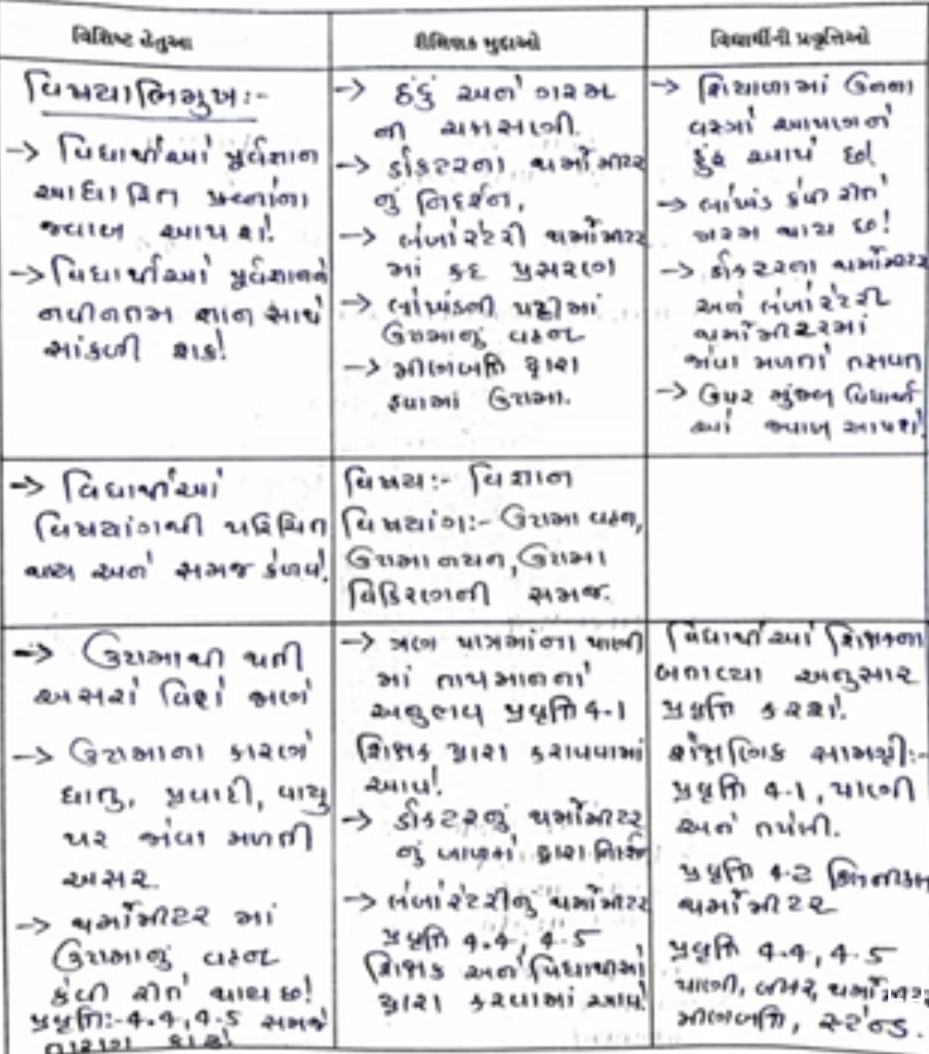 વિશિષ્ટ હેતુઆ
શૈક્ષિણક મુદ્દાઓ
વિદ્યાર્થીની પ્રવૃત્તિઓ
વિષયાભિમુખ :-
→ વિદ્યાર્થીઓ પૂર્વજ્ઞાન
આધારિત પ્રશ્નોના
જવાબ આપશે.
→ વિદ્યાર્થીઓ પૂર્વજ્ઞાનને
નવીનતમ જ્ઞાન સાથે
સાંકળી શકે.
→ ઠંડું અને ગરમ
ની ચકાસણી.
→ ડૉકટરના થર્મોમીટર
નું નિદર્શન,
→ લેબોરેટેરી થર્મોમીટર
માં કદ પ્રસરણ
→ લોખંડની પટ્ટીમાં
ઉષ્માનું વહન
→ મીણબત્તિ દ્વારા
હવામાં ઉષ્મા.
→ શિયાળામાં ઉનના
વસ્ત્રો આપણને
હુંફ આપે છે.
→ લોખંડ કેવી રીતે
ગરમ થાય છે.
→ ડૉકટરના થર્મોમીટર
અને લેબોરેટરી
થર્મોમીટરમાં
જોવા મળતો તફાવત
→ ઉપર મુજબ વિદ્યાર્થી
ઓ જવાબ આપશે.
→ વિદ્યાર્થીઓ
વિષયાંગથી પરિચિત
થાય અને સમજ કેળવે.
વિષય :- વિજ્ઞાન
વિષયાંગ :- ઉષ્મા વહન,
ઉષ્માનયન, ઉષ્મા
વિકિરણની સમજ.
→ ઉષ્માથી થતી
અસરો વિશે જાણે
→ ઉષ્માના કારણે
ધાતુ, પ્રવાહી, વાયુ
પર જોવા મળતી
અસર.
→ થર્મોમીટર માં
ઉષ્માનું વહન
કેવી રીતે થાય છે.
પ્રવૃત્તિ :- 4.4, 4.5 સમજે
→ ત્રણ પાત્રમાંના પાણી
માં તાપમાનનો
અનુભવ પ્રવૃત્તિ 4-1
શિક્ષક દ્વારા કરાવવામાં
આવે.
→ ડૉકટરનું થર્મોમીટર
નું બાળકો દ્વારા
→ લેબોરેટેરીનું થર્મોમીટર
પ્રવૃત્તિ 4.4, 4.5
શિક્ષક અને વિદ્યાર્થીઓ
દ્વારા કરવામાં આવે.
વિદ્યાર્થીઓ શિક્ષકના
બતાવ્યા અનુસાર
પ્રવૃત્તિ કરશે.
શૈક્ષણિક સામગ્રી :-
પ્રવૃત્તિ 4-1, પાણી
અને તપેલી.
પ્રવૃત્તિ 4-2 ક્લિનીકલ
થર્મોમીટર
પ્રવૃત્તિ 4.4, 4.5
પાણી, બીકર, થર્મોમીટર
મીણબત્તિ, સ્ટેન્ડ.